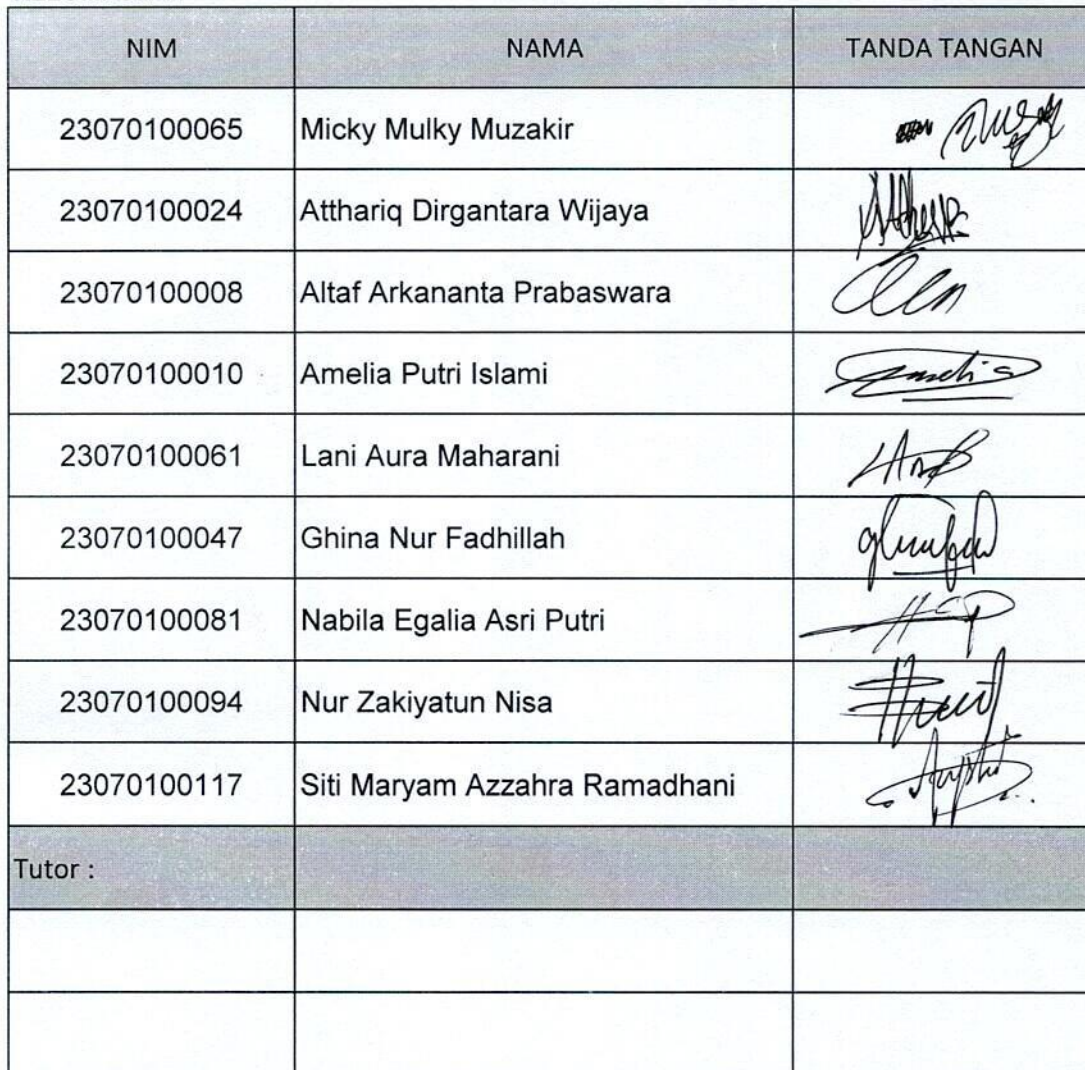 NIM NAMA TANDA TANGAN
23070100065 Micky Mulky Muzakir
23070100024 Atthariq Dirgantara Wijaya
23070100008 Altaf Arkananta Prabaswara
23070100010 Amelia Putri Islami
23070100061 Lani Aura Maharani
23070100047 Ghina Nur Fadhillah
23070100081 Nabila Egalia Asri Putri
23070100094 Nur Zakiyatun Nisa
23070100117 Siti Maryam Azzahra Ramadhani
Tutor :